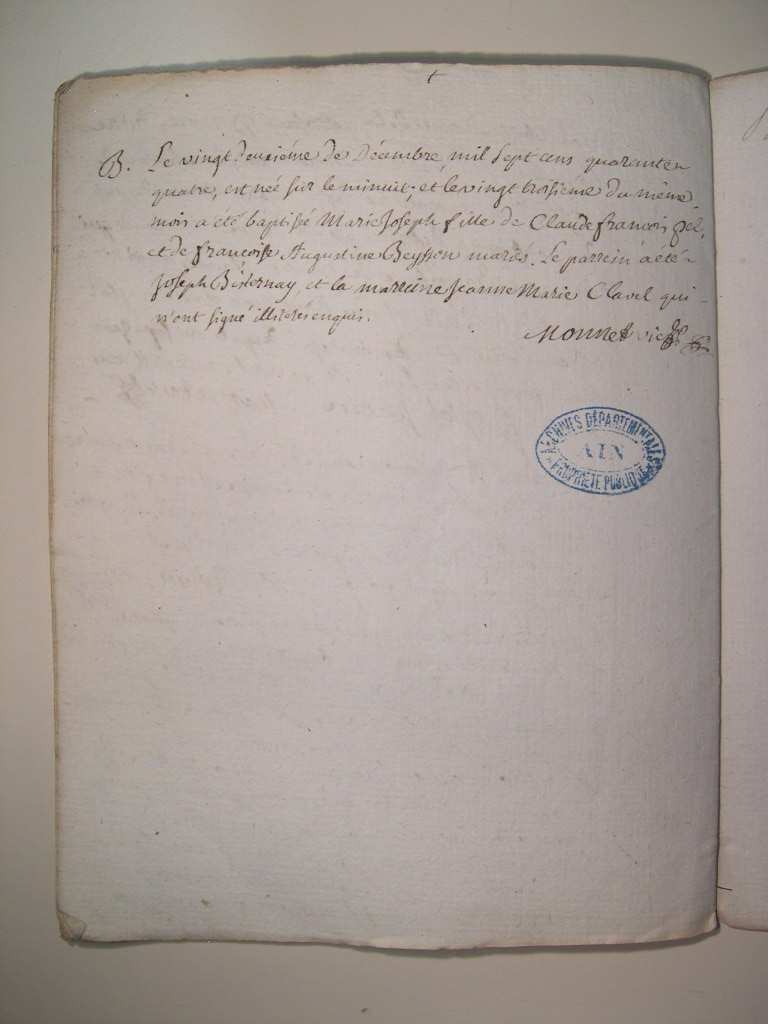 B. Le vingt deuxiéme de Décembre, mil sept cens quarante
quatre, est neé sur le minuit; et le vingt troisieme du méme
mois a eté baptisé Marie Joseph fille de Claude francois
et de francoise Augustine Beysson mariés. Le parrein a eté
Joseph et la marreine Jeanne Marie Clavel qui
n'ont signé illiterés enquis.
Monnet vic
ARCHIVES DÉPARTEMENTALES
AIN
PROPRIÉTÉ PUBLIQUE